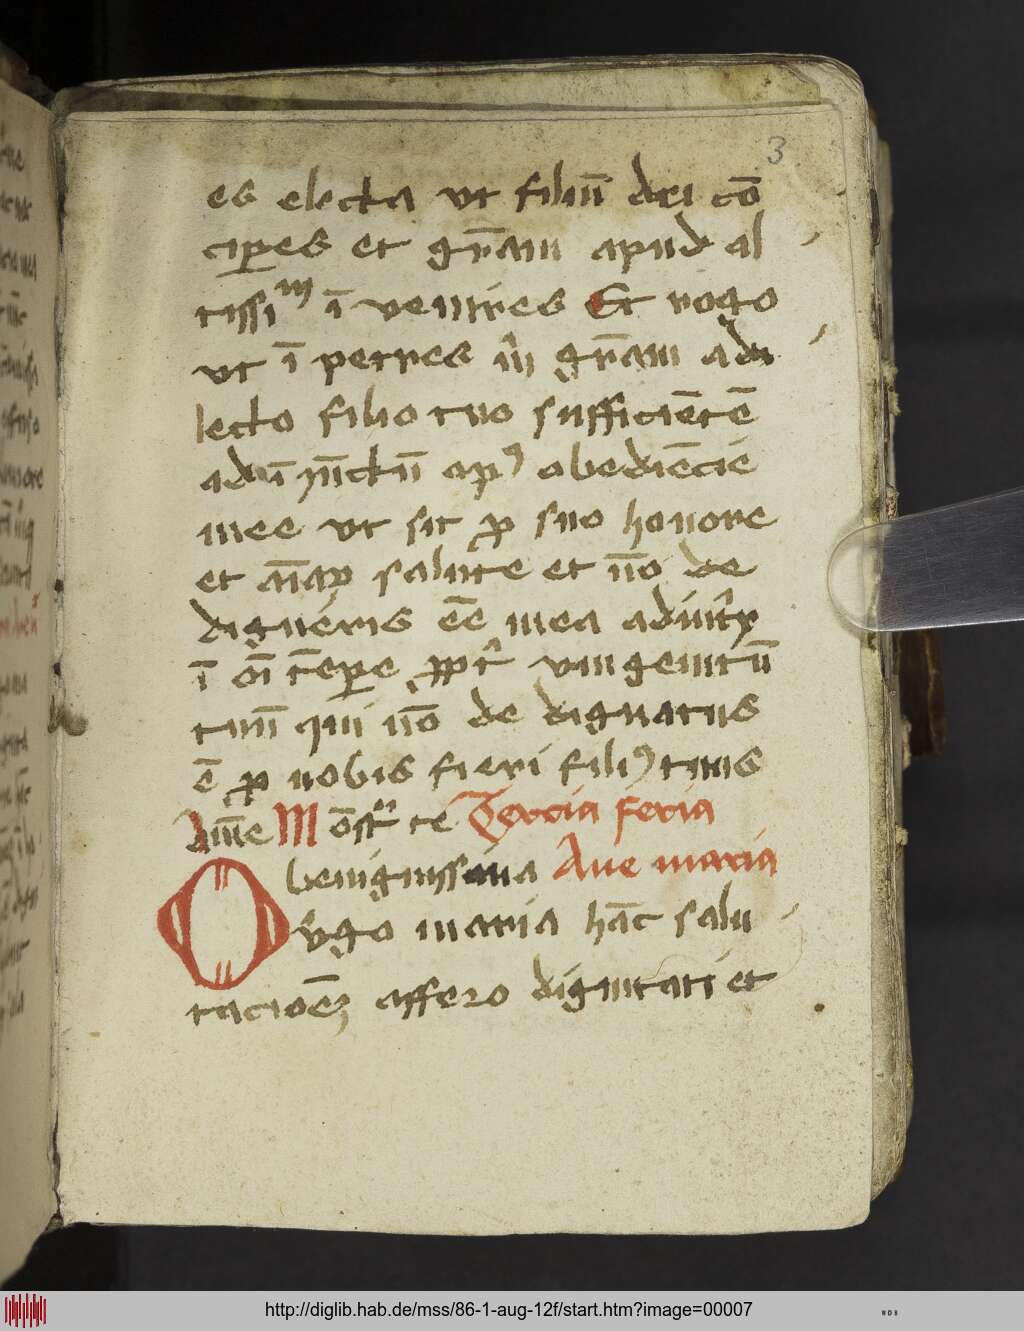 3
es electa ut filiū dei cō
ciꝑes et gr̄am apud al
tissiᵐ ī ventres Et rogo
ut ī petres m̄ gr̄am a di
lecto filio tuo sufficiētē
ad obediēcie
mee ut sit ꝓ suo honore
et aīaꝝ salute et nō de
digneris ēē mea adiut̾x
ī oī tēꝑe ꝓpt̾ unigenitū
tuū qui nō de dignatus
ē ꝓ nobis fieri filiꝰ tuus
Ame Mōst̾ te Tercia feria
O benignissima Ave maria
v̾go maria hāc salu
tacioēꝫ affero dignitati et
http://diglib.hab.de/mss/86-1-aug-12f/start.htm?image=00007